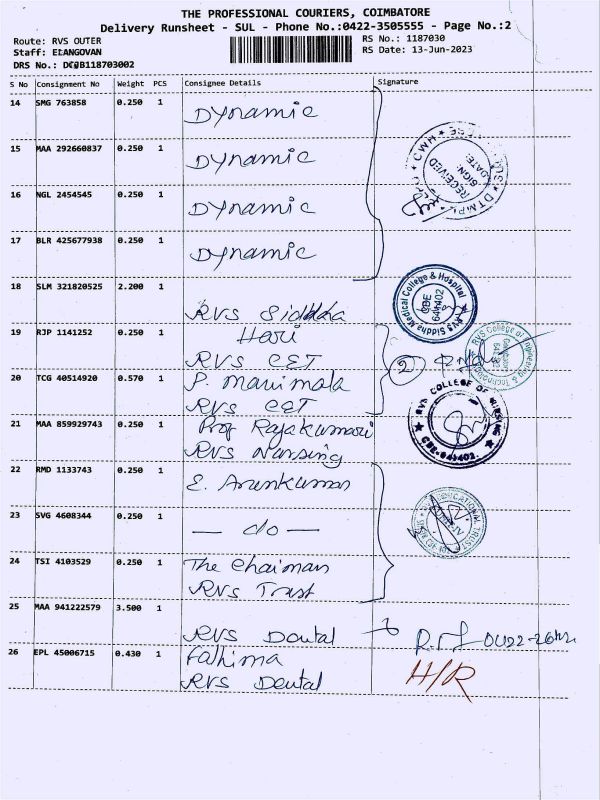 THE PROFESSIONAL COURIERS, COIMBATORE
Delivery Runsheet - SUL - Phone No.:0422-3505555 - Page No.:2
Route: RVS OUTER
RS No.: 1187030
Staff: ELANGOVAN
RS Date: 13-Jun-2023
DRS No.: 118703002
S No Consignment No Weight PCS Consignee Details Signature
14 SMG 763858 0.250 1 Dynamic
15 MAA 292660837 0.250 1 Dynamic
16 NGL 2454545 0.250 1 Dynamic
17 BLR 425677938 0.250 1 Dynamic
RECEIVED
SIGN:
DATE:
18 SLM 321820525 2.200 1
RVS Siddha
RVS Siddha Medical College & Hospital
CBE
641402
19 RJP 1141252 0.250 1 Hari
RVS CET
2
RVS College of Engineering & Technology
Coimbatore
20 TCG 40514920 0.570 1 P. Manimala
RVS CET
21 MAA 859929743 0.250 1 Prof Rajakumari
RVS Nursing
RVS COLLEGE OF NURSING
CBE-641402.
22 RMD 1133743 0.250 1 E. Arunkumar
23 SVG 4608344 0.250 1 — do —
24 TSI 4103529 0.250 1 The Chaiman
RVS Trust
25 MAA 941222579 3.500 1
RVS Dental
26 EPL 45006715 0.430 1 Fathima
RVS Dental
H/R